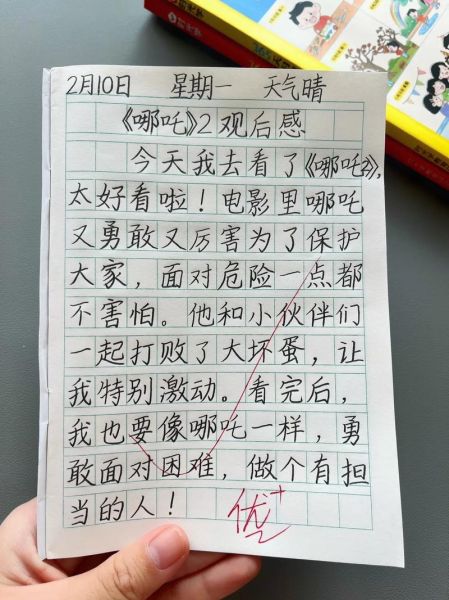 2月10日 星期一 天气晴
《哪吒》2观后感
今天我去看了《哪吒2》,
太好看啦！电影里哪吒
又勇敢又厉害为了保护
大家，面对危险一点都
不害怕。他和小伙伴们
一起打败了大坏蛋，让
我特别激动。看完后，
我也要像哪吒一样，勇
敢面对困难，做个有担
当的人！
优+